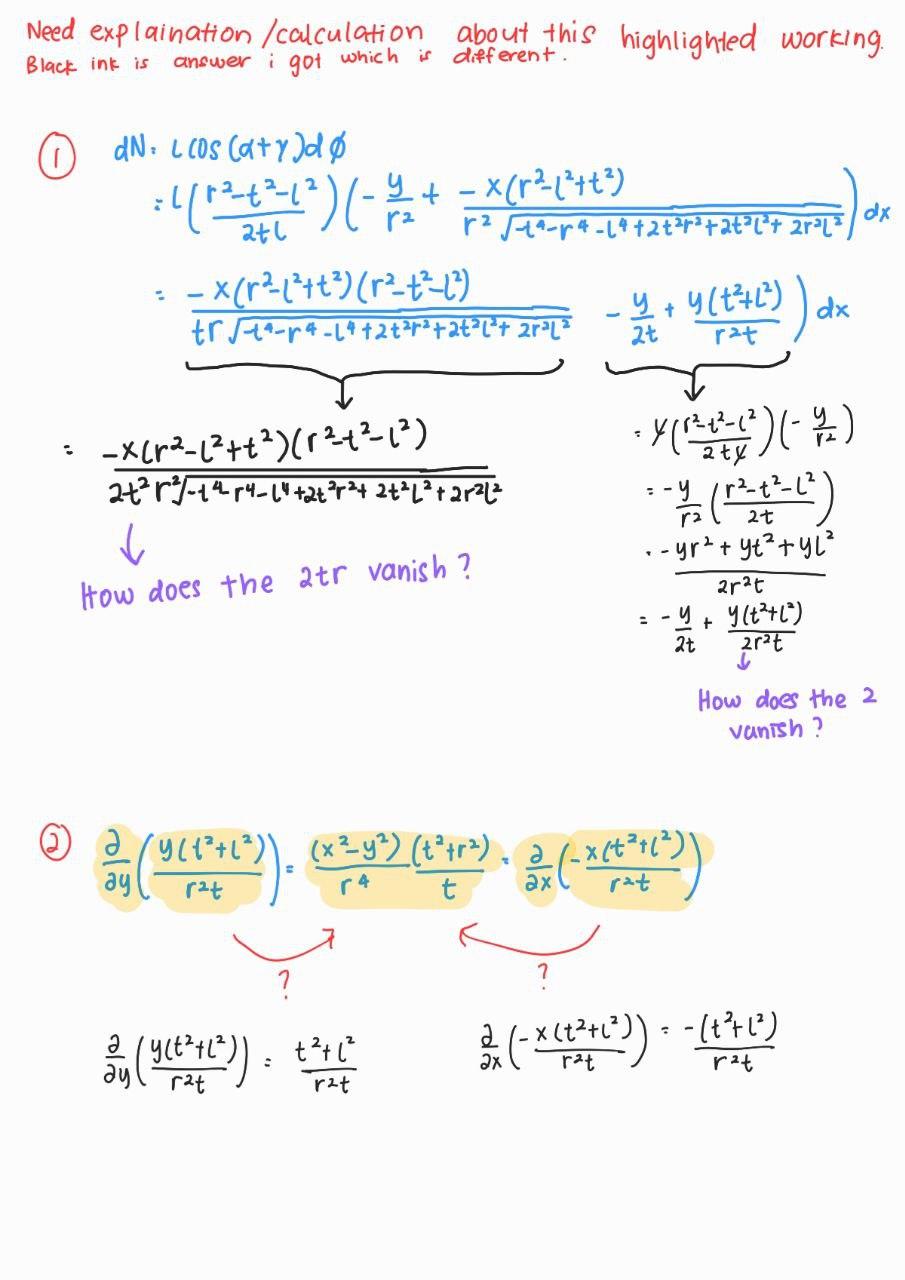 Need explaination /calculation about this highlighted working.
Black ink is answer i got which is different.
① dN = L cos (α+γ)dφ
= L((r²-t²-l²)/(2tl))(-y/r² + (-x(r²-l²+t²))/(r²√(-t⁴-r⁴-l⁴+2t²r²+2t²l²+2r²l²)))dx
= (-x(r²-l²+t²)(r²-t²-l²))/(tr√(-t⁴-r⁴-l⁴+2t²r²+2t²l²+2r²l²)) -y/2t + y(t²+l²)/(r²t))dx
= (-x(r²-l²+t²)(r²-t²-l²))/(2t²r²√(-t⁴-r⁴-l⁴+2t²r²+2t²l²+2r²l²))
How does the 2tr vanish?
= l((r²-t²-l²)/(2tl))(-y/r²)
= -y/r²((r²-t²-l²)/(2t))
= (-yr²+yt²+yl²)/(2r²t)
= -y/2t + y(t²+l²)/(2r²t)
How does the 2
vanish?
② ∂/∂y(y(t²+l²)/(r²t)) = (x²-y²)/r⁴ (t²+r²)/t = ∂/∂x(-x(t²+l²)/(r²t))
? ?
∂/∂y(y(t²+l²)/(r²t)) = (t²+l²)/(r²t)
∂/∂x(-x(t²+l²)/(r²t)) = -(t²+l²)/(r²t)